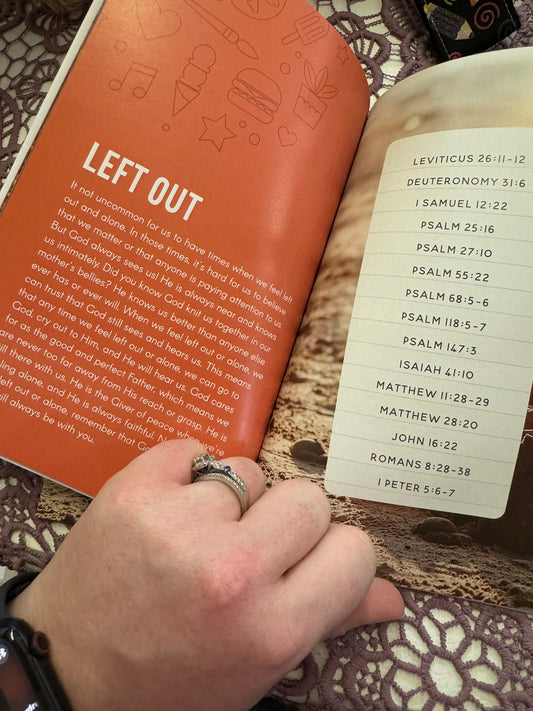 LEFT OUT
It not uncommon for us to have times when we feel left
out and alone. In those times, it's hard for us to believe
that we matter or that anyone is paying attention to us.
But God always sees us! He is always near and knows
us intimately. Did you know God knit us together in our
mother's bellies? He knows us better than anyone else
ever has or ever will. When we feel left out or alone, we
can trust that God still sees and hears us. This means
that any time we feel left out or alone, we can go to
God, cry out to Him, and He will hear us. God cares
for as the good and perfect Father, which means we
are never too far away from His reach or grasp. He is
ill there with us. He is the Giver of peace when we're
ling alone, and He is always faithful.
left out or alone, remember that
ill always be with you.
LEVITICUS 26:11-12
DEUTERONOMY 31:6
1 SAMUEL 12:22
PSALM 25:16
PSALM 27:10
PSALM 55:22
PSALM 68:5-6
PSALM 118:5-7
PSALM 147:3
ISAIAH 41:10
MATTHEW 11:28-29
MATTHEW 28:20
JOHN 16:22
ROMANS 8:28-38
1 PETER 5:6-7